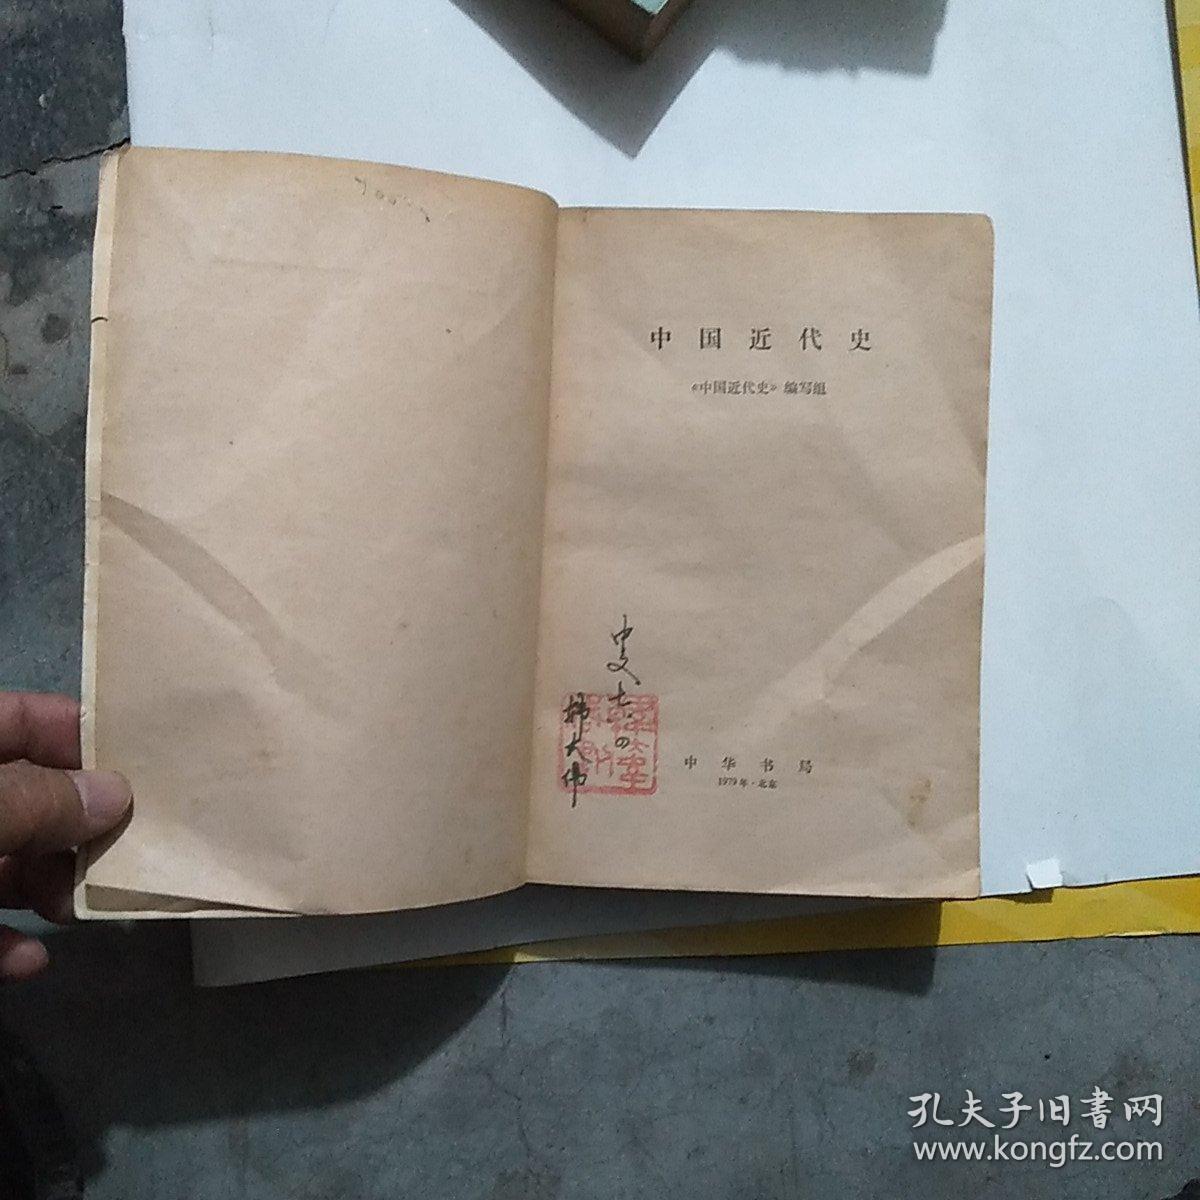 中国近代史
《中国近代史》编写组
中文七.四
韩大伟
中华书局
1979年·北京
孔夫子旧書网
www.kongfz.com